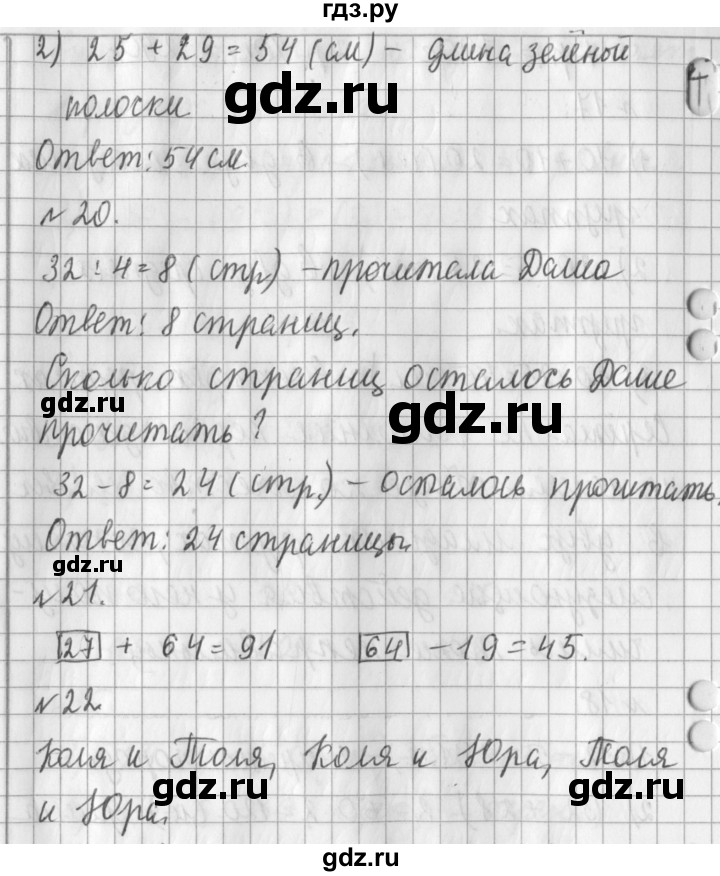 гдз.ру
2) 25 + 29 = 54 (см) - длина зелёной
полоски
gdz.ru
Ответ: 54 см.
№ 20.
32 : 4 = 8 (стр) - прочитала Даша
Ответ: 8 страниц.
Сколько страниц осталось Даше
gdz.ru gdz.ru
прочитать?
32 - 8 = 24 (стр.) - осталось прочитать.
Ответ: 24 страницы.
gdz.ru gdz.ru
№ 21.
27 + 64 = 91 64 - 19 = 45.
№ 22.
Коля и Толя, Коля и Юра, Толя
gdz.ru gdz.ru
и Юра.
gdz.ru